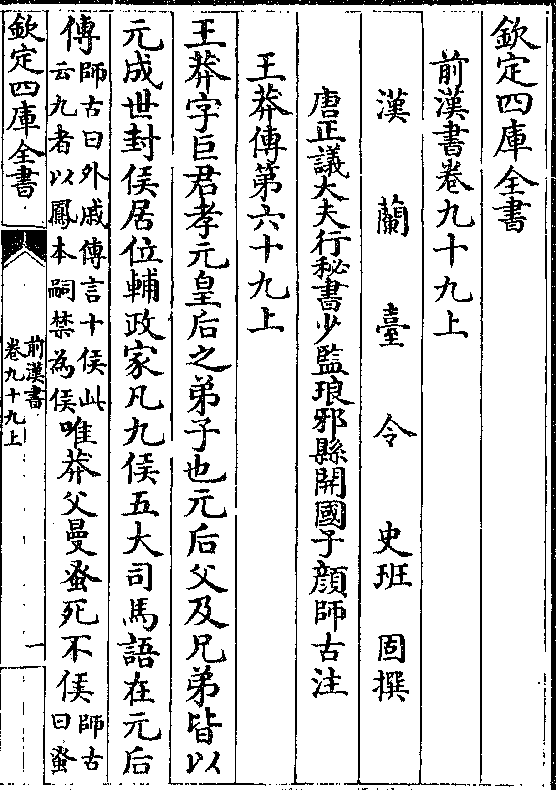 欽定四庫全書
前漢書卷九十九上
漢蘭臺令史班固撰
唐正議大夫行秘書少監琅邪縣開國子顔師古注
王莽傳第六十九上
王莽字巨君孝元皇后之弟子也元后父及兄弟皆以
元成世封侯居位輔政家凡九侯五大司馬語在元后
傳師古曰外戚傳言十侯此云九者以鳳本嗣禁為侯唯莽父曼蚤死不侯師古曰蚤
欽定四庫全書
前漢書
卷九十九上
一